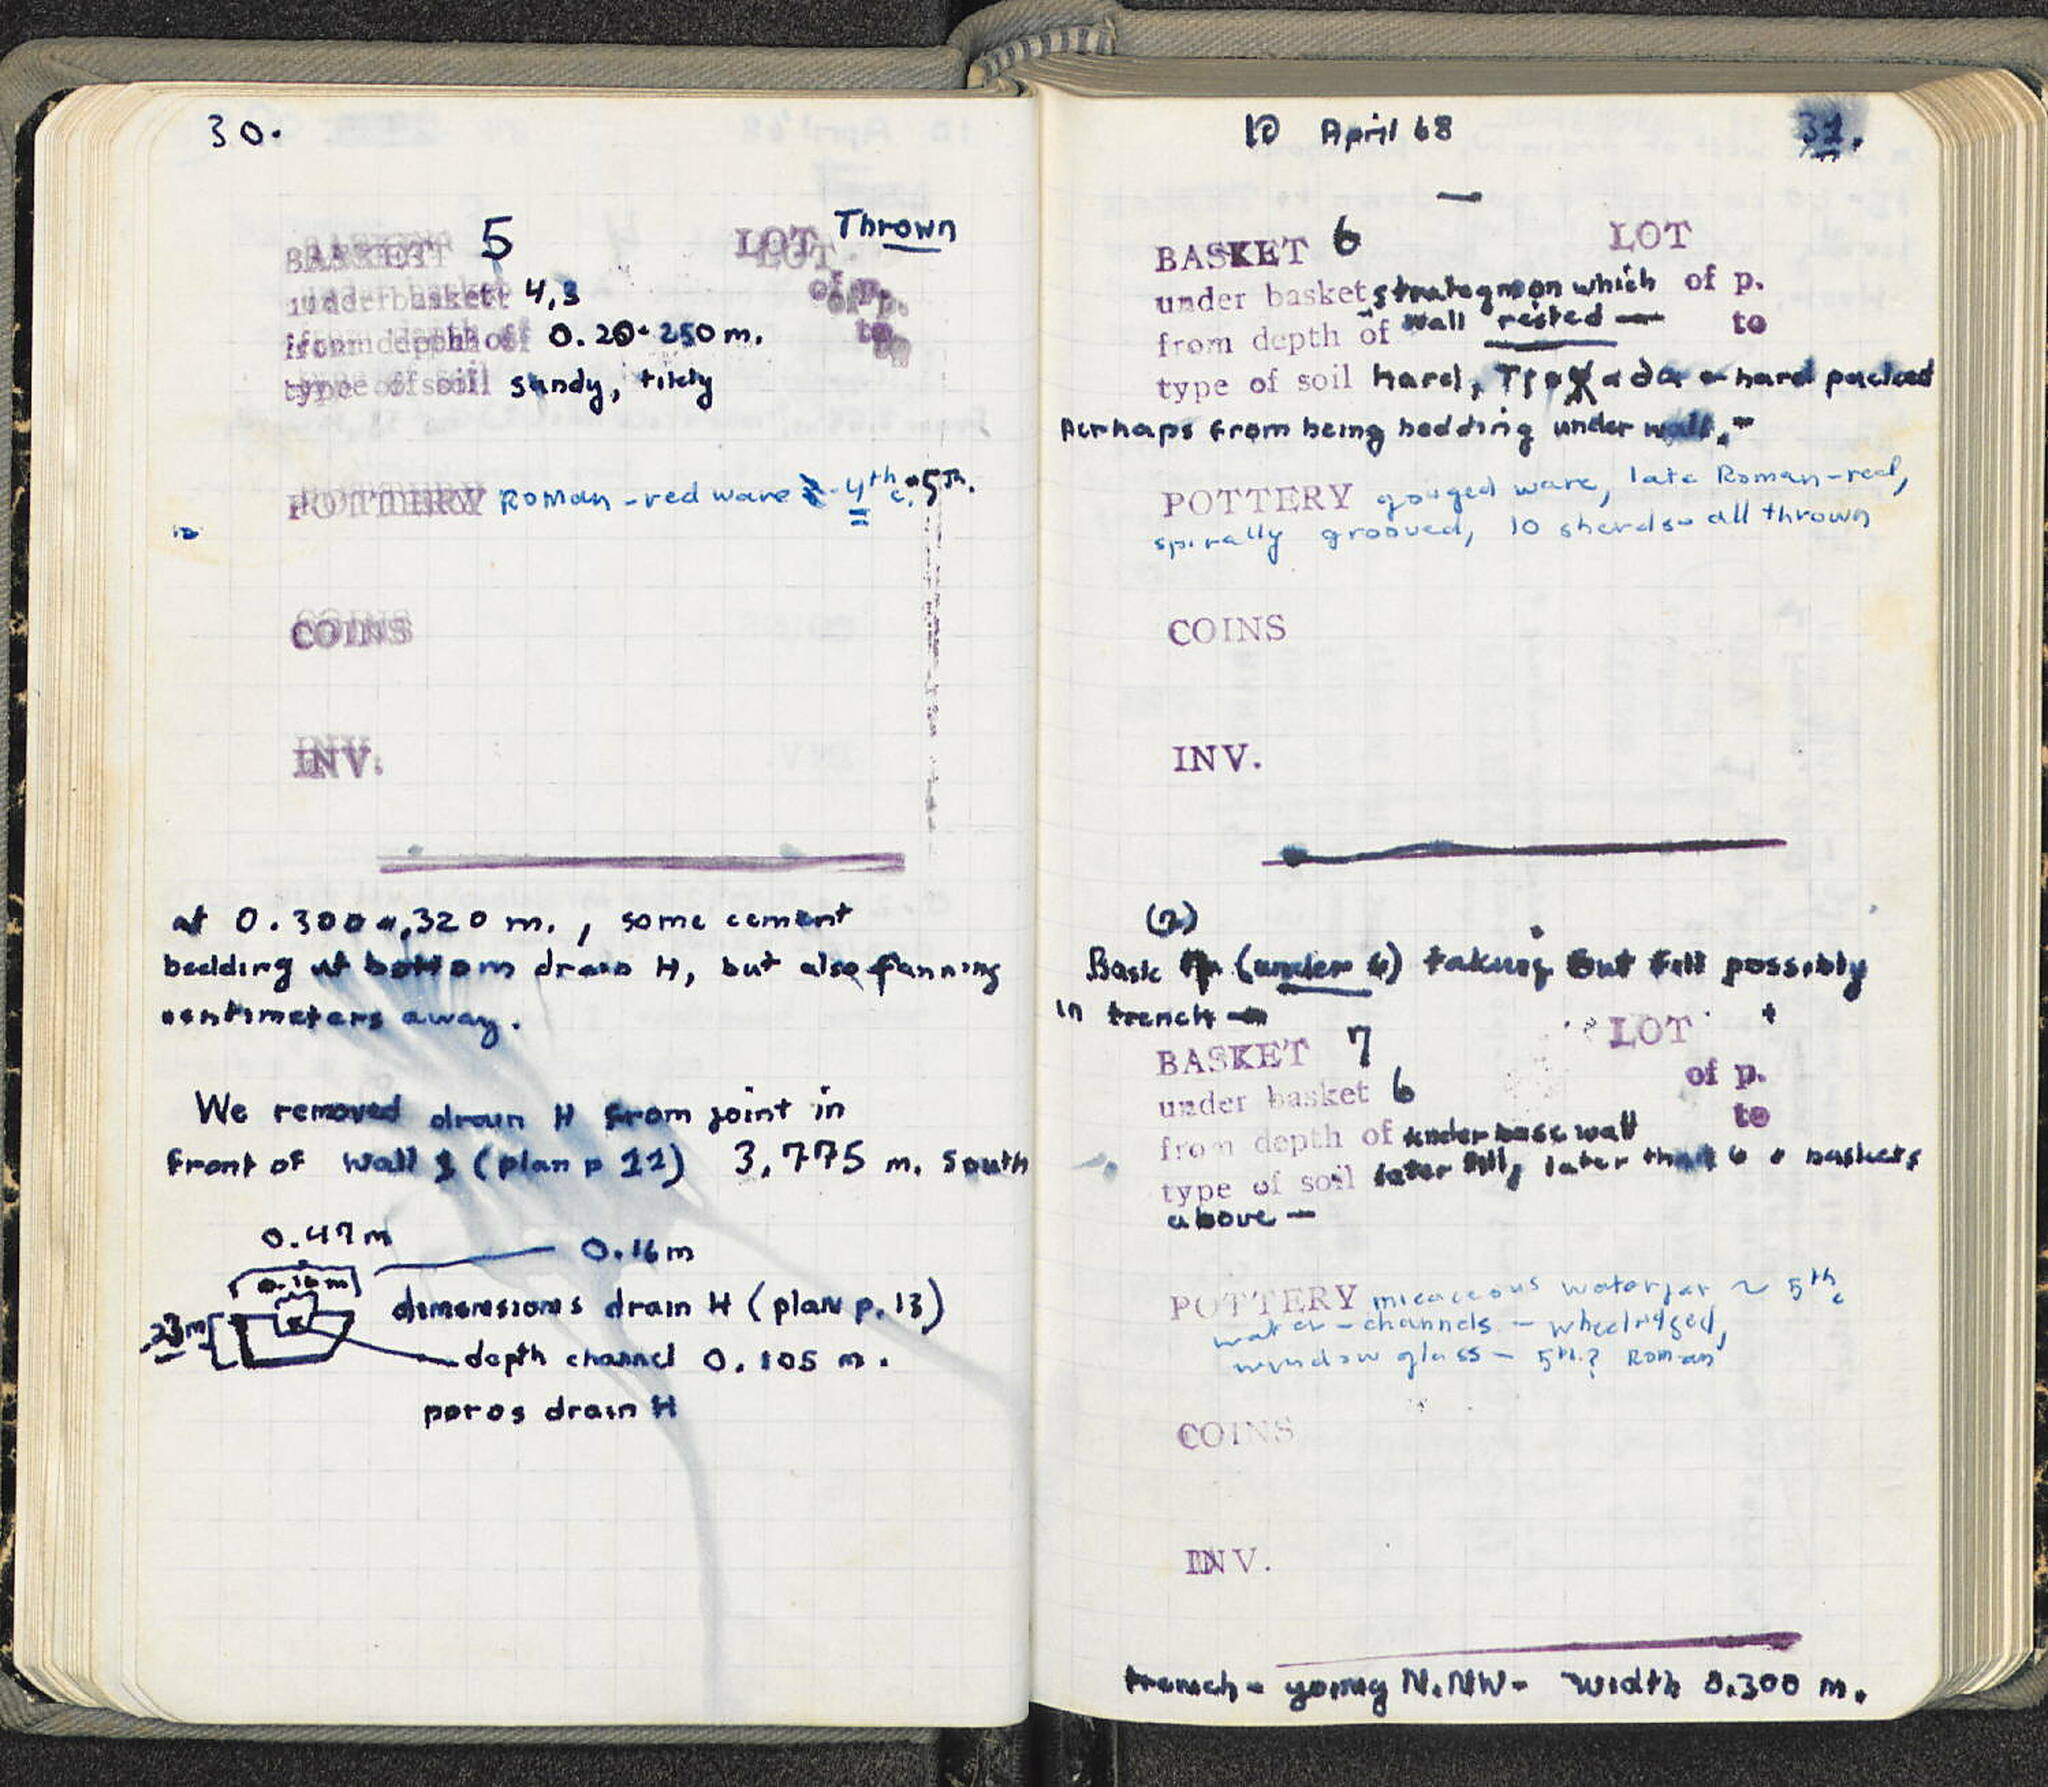 30.
BASKET 5 LOT Thrown
under basket 4,3 of p.
from depth of 0.20-250 m. to
type of soil sandy, tildy
POTTERY Roman - red ware 4th c. - 5th.
COINS
INV.
at 0.300-.320 m., some cement
bedding at bottom drain H, but also fanning
centimeters away.
We removed drain H from joint in
front of Wall 1 (plan p 11) 3,775 m. South
0.47 m
0.16 m
0.16 m
dimensions drain H (plan p. 13)
.23 m
depth channel 0.105 m.
poros drain H
10 April 68 31.
BASKET 6 LOT
under basket, strategm on which of p.
from depth of wall rested — to
type of soil hard, - hard packed
Perhaps from being bedding under wall. -
POTTERY gouged ware, late Roman-red,
spirally grooved, 10 sherds - all thrown
COINS
INV.
(2)
Bask (under 6) taking out fill possibly
in trench —
BASKET 7 LOT
under basket 6 of p.
from depth of under base wall to
type of soil later fill, later than 6 baskets
above —
POTTERY micaceous waterjar ~ 5th c
water-channels - wheelridged,
window glass - 5th? Roman
COINS
INV.
trench - going N.NW - width 0.300 m.